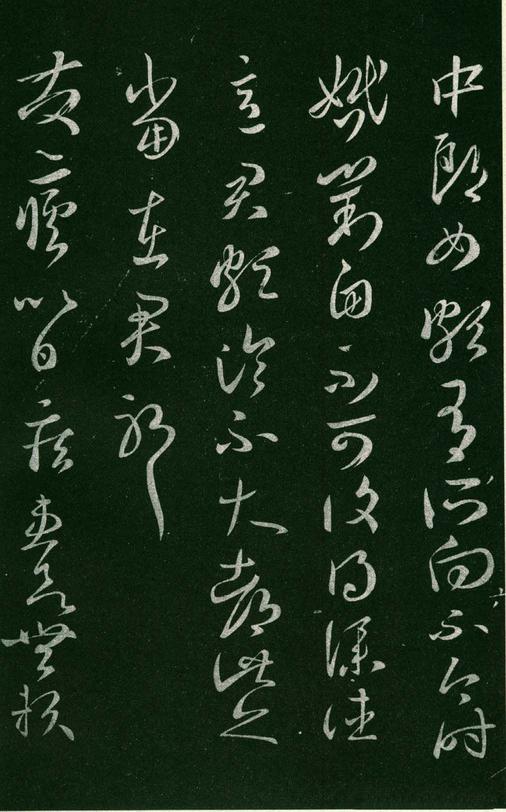 中郎女頗有所向不今時
婚對自不可復得僕往
意君頗論不大都此亦
當在君耶
疾無賴